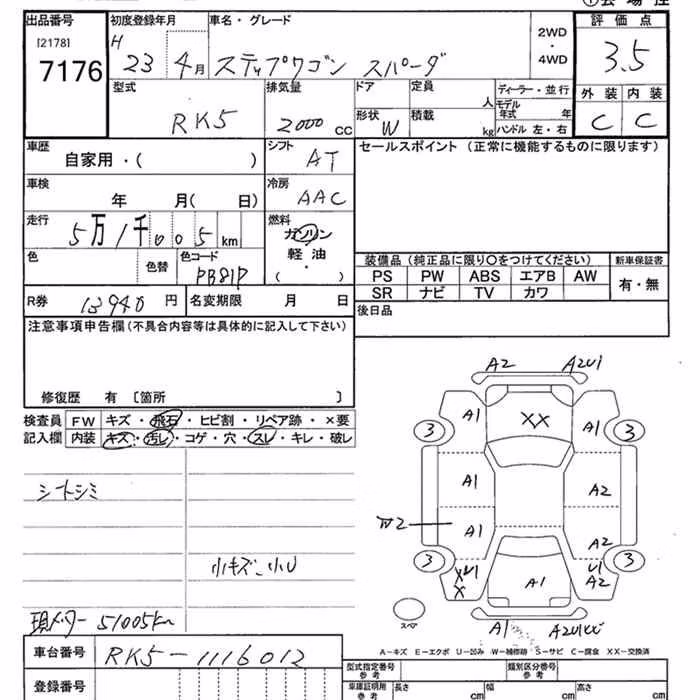 出品番号 初度登録年月 車名・グレード 評価点
[2178] 7176
H 23 4月 ステップワゴン スパーダ
2WD・4WD
3.5
型式 排気量 ドア 定員 ディーラー・並行 外装 内装
RK5 2000 cc 人 モデル年式 年
形状 W 積載 kg ハンドル 左・右 C C
車歴 シフト セールスポイント(正常に機能するものに限ります)
自家用・( ) AT
車検 冷房
年 月( 日) AAC
走行 燃料
5万1千005km ガソリン
色 色替 色コード 軽油
PB81P ・( )
装備品(純正品に限り○をつけてください) 新車保証書
PS PW ABS エアB AW 有・無
SR ナビ TV カワ
R券 13940円 名変期限 月 日 後日品
注意事項申告欄(不具合内容等は具体的に記入して下さい)
修復歴 有〔箇所 〕
検査員 FW キズ・飛石・ヒビ割・リペア跡・×要
記入欄 内装 キズ・汚レ・コゲ・穴・スレ・キレ・破レ
シートシミ
小キズ、小U
現メーター 51005km
A2 A2U1
3 A1 XX A1 3
A1 A2
W2 A1 A2
3 XU1 X A1 U1 A2 3
スペア A1
A-キズ E-エクボ U-凹み W-補修跡 S-サビ C-腐食 XX-交換済
車台番号 RK5-1116012
登録番号
型式指定番号 参考 類別区分番号 参考
車庫証明用 参考 長さ cm 幅 cm 高さ cm